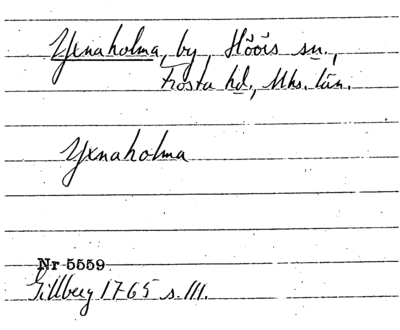 Yxnaholma, by, Höörs sn.,
Frosta hd., Mhs. län.
Yxnaholma
Nr 5559
Gillberg 1765 s. 111.